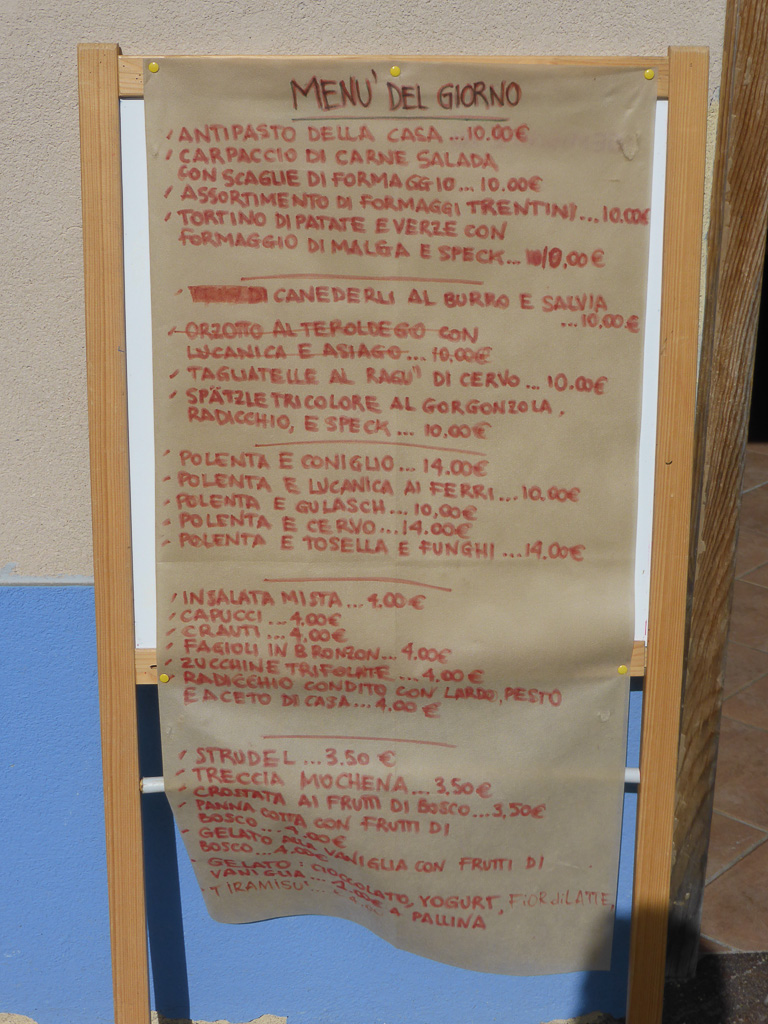 MENU' DEL GIORNO
ANTIPASTO DELLA CASA ...10.00€
CARPACCIO DI CARNE SALADA
CON SCAGLIE DI FORMAGGIO... 10.00€
ASSORTIMENTO DI FORMAGGI TRENTINI...10.00€
TORTINO DI PATATE E VERZE CON
FORMAGGIO DI MALGA E SPECK... 10,00€
CANEDERLI AL BURRO E SALVIA
...10.00€
ORZOTTO AL TEROLDEGO CON
LUCANICA E ASIAGO... 10,00€
TAGLIATELLE AL RAGU' DI CERVO ... 10.00€
SPÄTZLE TRICOLORE AL GORGONZOLA,
RADICCHIO, E SPECK ... 10,00€
POLENTA E CONIGLIO... 14.00€
POLENTA E LUCANICA AI FERRI...10.00€
POLENTA E GULASCH... 10,00€
POLENTA E CERVO...14.00€
POLENTA E TOSELLA E FUNGHI ...14.00€
INSALATA MISTA ... 4.00€
CAPUCCI ... 4.00€
CRAUTI ... 4,00€
FAGIOLI IN BRONZON... 4.00€
ZUCCHINE TRIFOLATE ... 4.00€
RADICCHIO CONDITO CON LARDO, PESTO
E ACETO DI CASA... 4,00€
STRUDEL ...3.50 €
TRECCIA MOCHENA...3,50€
CROSTATA AI FRUTTI DI BOSCO...3,50€
PANNA COTTA CON FRUTTI DI
BOSCO ... 4.00€
GELATO ALLA VANIGLIA CON FRUTTI DI
BOSCO ... 4.00€
GELATO: CIOCCOLATO, YOGURT, FIOR di LATTE,
VANIGLIA... A PALLINA
TIRAMISU'...